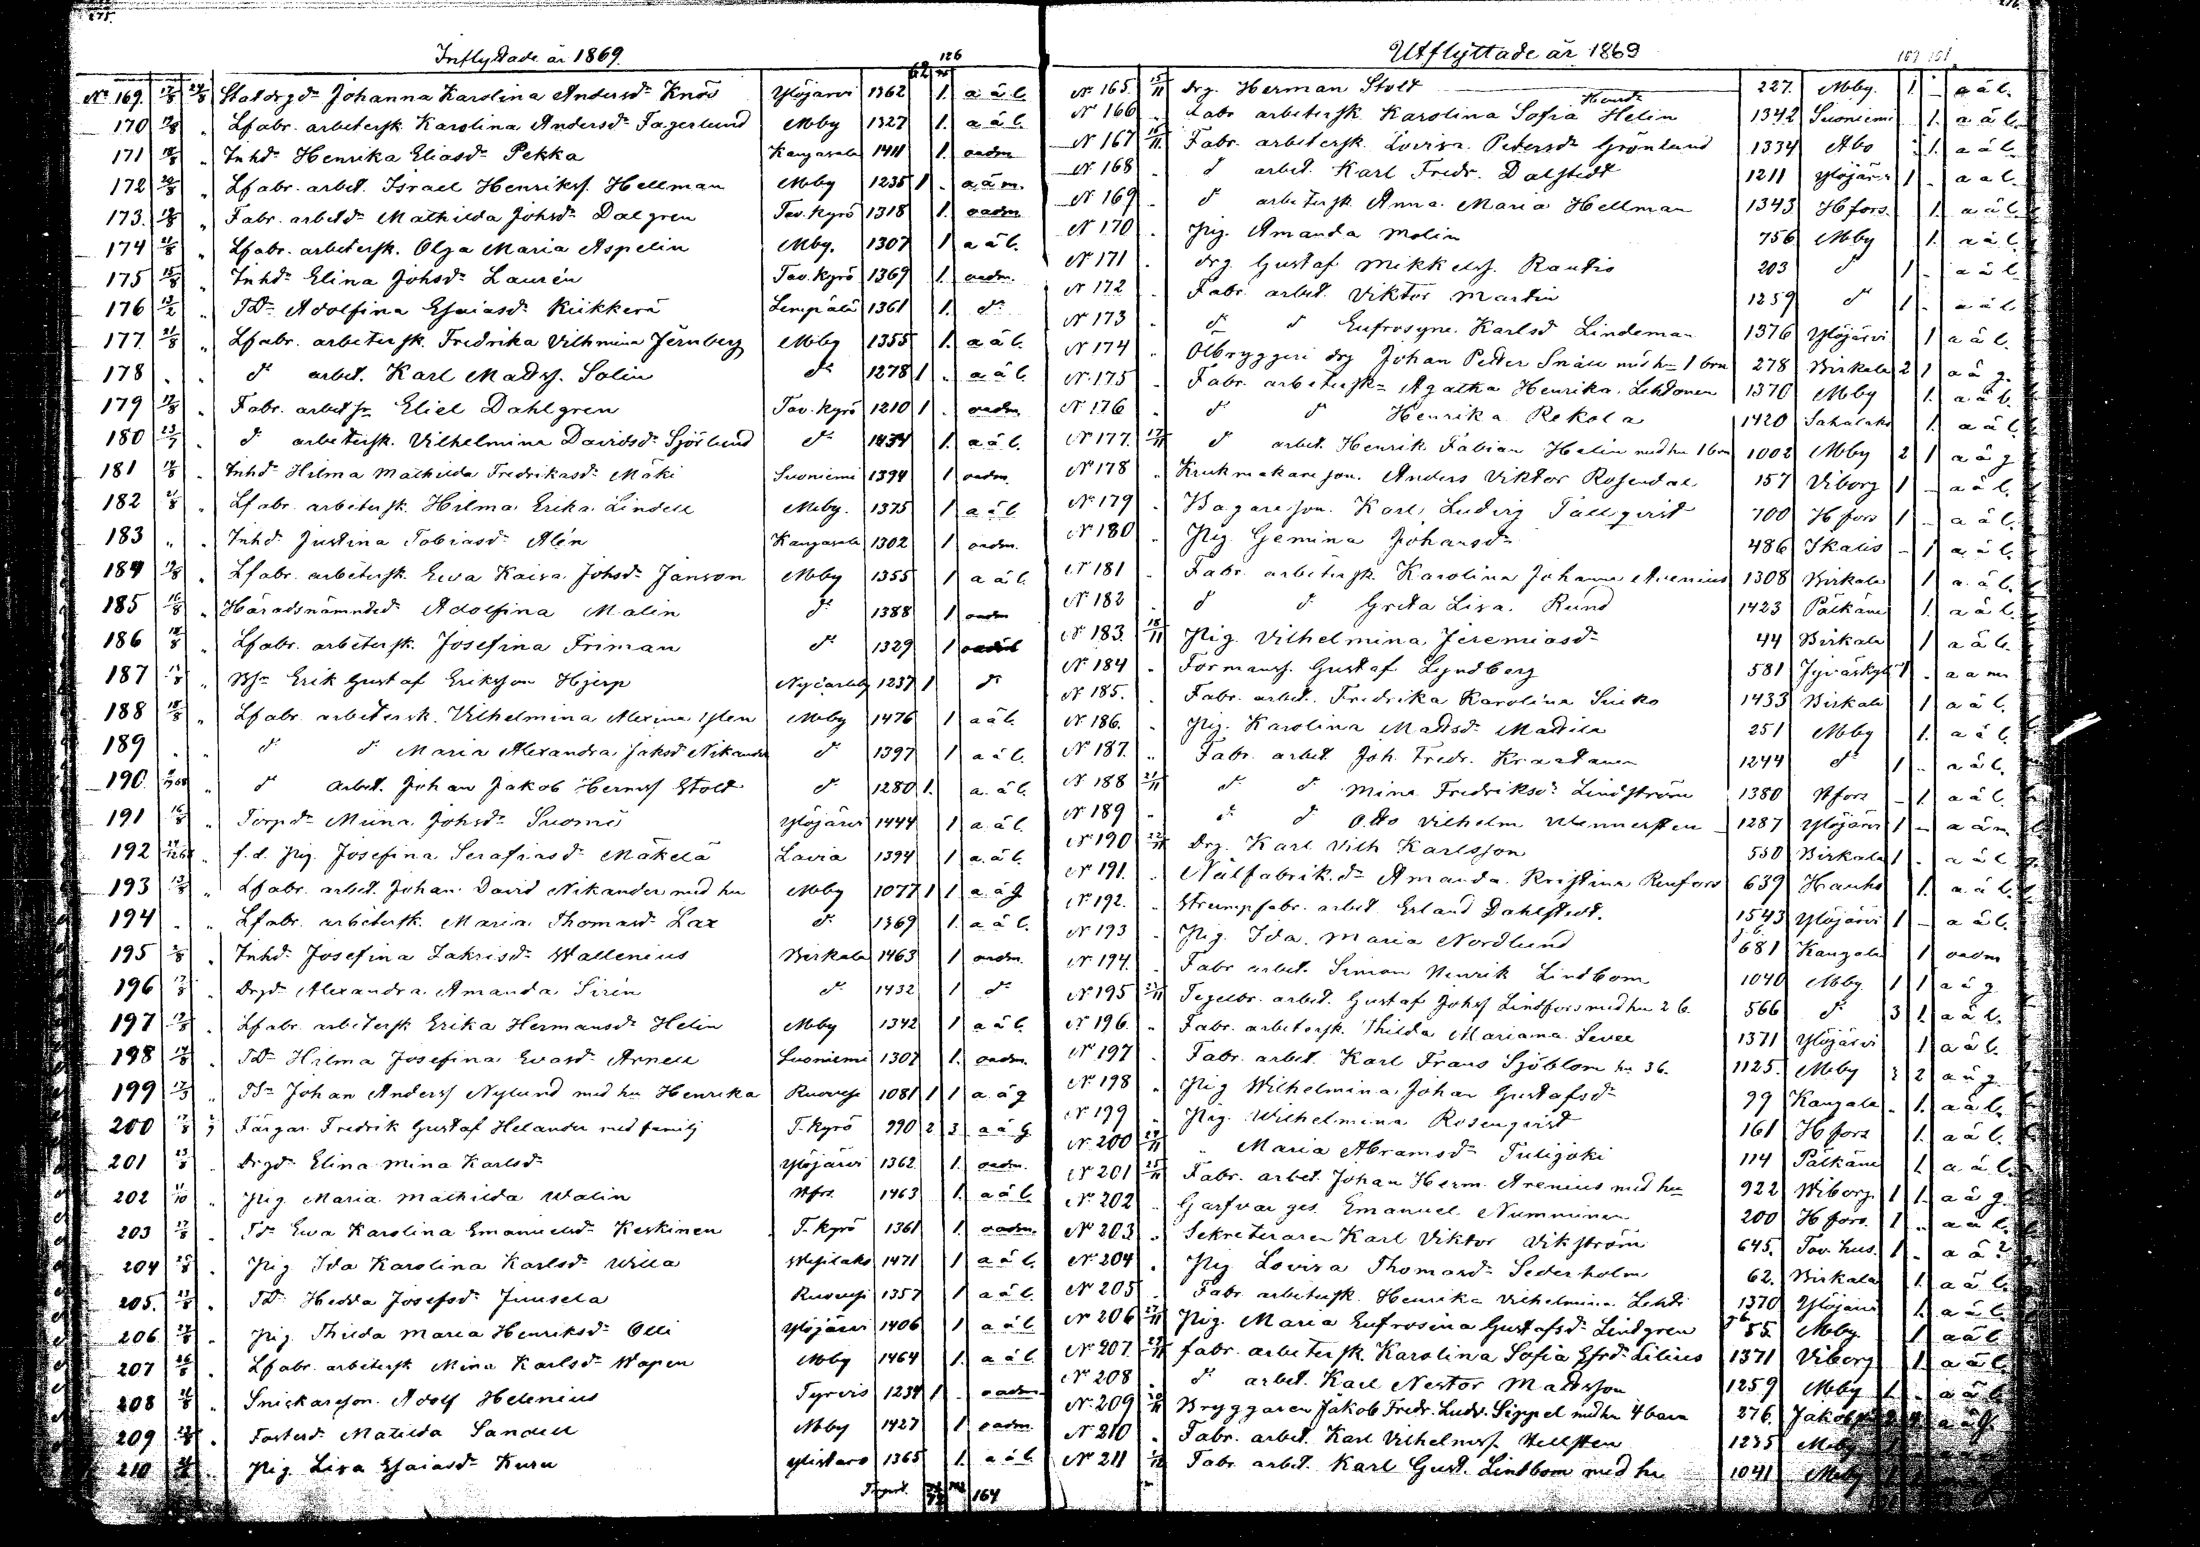 275.
Inflyttade år 1869.
62 126
No 169. 12/8 24/8 Statdrgdr Johanna Karolina Andersdr Knös Ylöjärvi 1362 1. a ä l.
170 Lfabr. arbetersk. Karolina Andersdr Fagerlund Mby 1327 1. a ä l.
171 Inhdr Henrika Eliasdr Pekka Kangasala 1411 1. oadm
172 Lfabr. arbet. Israel Henrikss. Hellman Mby 1235 1 . a ä m.
173. Fabr. arbetdr Mathilda Johsdr Dalgren Tav. Kyrö 1318 1. oadm
174 Lfabr. arbetersk. Olga Maria Aspelin Mby. 1307 1 a ä l.
175 Inhdr Elina Johsdr Laurén Tav. Kyrö 1369 1. oadm.
176 TDr Adolfina Esaiasdr Kiikkerä Lempälä 1361 1. dr
177. 21/8 Lfabr. arbetersk. Fredrika Vilhmina Jernberg Mby 1355 1. a ä l.
178 . . dr arbet. Karl Matss. Solin dr 1278 1 . a ä l.
179 Fabr. arbet sr Eliel Dahlgren Tav. Kyrö 1210 1 . oadm.
180 23/7 dr arbetersk. Vilhelmina Davidsdr Sjölund dr 1434 1. a ä l.
181 Inhdr Hilma Mathilda Fredrikasdr Mäki Suoniemi 1394 1 oadm.
182 21/8 Lfabr. arbetersk. Hilma Erika Lindell Mby. 1375 1 a ä l.
183 " . Inhdr Justina Tobiasdr Alén Kangasala 1302 1 oadm.
184 Lfabr. arbetersk. Ewa Kaisa Johsdr Janson Mby 1355 1 a ä l.
185 16/8 Häradsnämndedr Adolfina Malin dr 1388 1 oadm
186 18/8 Lfabr. arbetersk. Josefina Friman dr 1329 1
187 Erik Gustaf Eriksson Hjerp Nycarleby 1237 1 dr
188 18/8 Lfabr. arbetersk. Vilhelmina Alexina Ylen Mby 1476 1 a ä l.
189 . . dr dr Maria Alexandra Jaksdr Nikander dr 1397 1 a ä l.
190. dr arbet. Johan Jakob Hermss Stolt dr 1280 1. a. ä l.
191 16/8 Torpdr Miina Johsdr Suomi Ylöjärvi 1444 1 a. ä l.
192 f.d. pig. Josefina Serafiasdr Mäkelä Lavia 1394 1 a. ä l.
193 13/8 Lfabr. arbet. Johan David Nikander med hu Mby 1077 1 1 a. ä g
194 . . Lfabr. arbetersk. Maria Thomasdr Lax dr 1369 1. a ä l.
195 Inhdr Josefina Zakrisdr Wallenius Birkala 1463 1 oadm.
196 Drgdr Alexandra Amanda Sirén dr 1432 1 dr
197 Lfabr arbetersk Erika Hermansdr Helin Mby 1342 1 a ä l
198 TDr Hilma Josefina Evasdr Arnell Suoniemi 1307 1. oadm.
199 TSr Johan Anderss Nylund med hu Henrika Ruovesi 1081 1 1 a. ä g
200 Färgar. Fredrik Gustaf Helander med familj T. Kyrö 990 2 3 a ä g.
201 Drgdr Elina Mina Karlsdr Ylöjärvi 1362 1. oadm.
202 11/10 Pig Maria Mathilda Walin Hfrs. 1463 1. a ä l.
203 17/8 TDr Ewa Karolina Emanuelsdr Keskinen T. Kyrö 1361 1. oadm.
204 Pig Ida Karolina Karlsdr Willa Wesilaks 1471 1 a ä l.
205. TDr Hedda Josefsdr Juusela Ruovesi 1357 1 a ä l.
206 Pig. Thilda Maria Henriksdr Olli Ylöjärvi 1406 1 a ä l
207 Lfabr. arbetersk Mina Karlsdr Wapen Mby 1464 1. a ä l.
208 Snickaresson. Adolf Helenius Tyrvis 1234 1 . oadm
209 Fosterd Matilda Sandell Mby 1427 1 oadm.
210 Pig Lisa Esaiasdr Kuru Ylistaro 1365 1. a ä l.
Transport. 164
276.
Utflyttade år 1869
No 165. 15/11 Drg. Herman Stolt 227. Mby. 1 - a ä l.
No 166 . Fabr arbetersk Karolina Sofia Helin 1342 Suoniemi 1. a ä l.
No 167 16/11 Fabr. arbetersk. Lovisa Petersdr Grönlund 1334 Abo 1. a ä l.
No 168 dr arbet. Karl Fredr. Dalstedt 1211 Ylöjärvi 1 . a ä l.
No 169 dr arbetersk Anna Maria Hellman 1343 Hfors. 1. a ä l.
No 170 . Pig. Amanda Molin 756 Mby 1. a ä l.
No 171 . Drg. Gustaf Mikkelss. Rautio 203 dr 1 . a ä l.
No 172 . Fabr. arbet. Viktor Martin 1259 dr 1 . a ä l.
No 173 . dr dr Eufrosyne Karlsdr Lindeman 1376 Ylöjärvi 1 a ä l.
No 174 . Ölbryggeri drg Johan Petter Snäll med hu 1 barn 278 Birkala 2 1 a ä g.
No 175 . Fabr. arbetersk. Agatha Henrika Lehtonen 1370 Mby 1. a ä l.
No 176 . dr dr Henrika Rekola 1420 Sahalaks 1. a ä l.
No 177. 17/11 dr arbet. Henrik Fabian Helin med hu 1 barn 1002 Mby 2 1 a ä g
No 178 . Krukmakare son. Anders Viktor Rosendal 157 Viborg 1 - a ä l.
No 179 . Bagare son. Karl Ludvig Tallqvist 700 Hfors 1 - a ä l.
No 180 . Pig Gemina Johansdr 486 Ikalis - 1 a. ä l.
No 181 . Fabr. arbetersk. Karolina Johanna Avenius 1308 Birkala 1 a. ä l.
No 182 . dr dr Greta Lisa Rund 1423 Pälkäne 1. a ä l.
No 183. 18/11 Pig. Vilhelmina Jeremiasdr 44 Birkala 1 a ä l.
No 184 . Formanss. Gustaf Lyndberg 581 Jyväskylä 1 . a ä m
No 185. . Fabr. arbet. Fredrika Karolina Suiko 1433 Birkala 1 a ä l.
No 186. . Pig. Karolina Matsdr Mattila 251 Mby 1. a ä l.
No 187. " Fabr. arbet. Joh. Fredr. Kraatanen 1244 dr 1 .. a ä l.
No 188 21/11 dr dr Mina Fredriksdr Lindström 1380 Hfors - 1. a ä l.
No 189 " dr dr Otto Vilhelm Wennersten 1287 Ylöjärvi 1 - a ä m.
No 190 22/11 Drg. Karl Vilh Karlsson 530 Birkala 1 . a ä l
No 191. . Nålfabrik.dr Amanda Kristina Renfors 639 Hauho 1. a. ä l.
No 192. . Strumpfabr. arbet. Erland Dahlstedt. 1543 Ylöjärvi 1 - a ä l.
No 193 . Pig. Ida Maria Nordlund 681 Kangala 1 oadm
No 194. . Fabr arbet. Simon Henrik Lindbom 1040 Mby 1 1 a ä g
No 195 23/11 Tegelbr. arbet. Gustaf Johss Lindfors med hu 2 b. 566 dr 3 1. a ä l.
No 196. . Fabr. arbetersk. Thilda Mariana Level 1371 Ylöjärvi 1 a ä l.
No 197 . Fabr. arbet. Karl Frans Sjöblom hu 3 b. 1125. Mby 3 2 a ä g.
No 198 . Pig Wilhelmina Johan Gustafsdr 99 Kangala . 1. a ä l.
No 199 . Pig. Wilhelmina Rosenqvist 161 Hfors 1. a ä l.
No 200 24/11 " Maria Abramsdr Tulijoki 114 Pälkäne 1. a ä l.
No 201 25/11 Fabr. arbet. Johan Herm. Arenius med hu 922 Wiborg 1 1. a ä g.
No 202 . Garfvar ges. Emanuel Numminen 200 Hfors. 1 .. a ä l.
No 203 . Sekreteraren Karl Viktor Vikström 645. Tav. hus. 1 . a ä ?
No 204 . Pig Lovisa Thomasdr Sederholm 62. Birkala 1. a ä l.
No 205 . Fabr. arbetersk. Henrika Vilhelmina Lehti 1370 Ylöjärvi 1. a ä l.
No 206 27/11 Pig. Maria Eufrosina Gustafsdr Lindgren 55. Mby. 1 a ä l
No 207. 29/11 fabr. arbetersk. Karolina Sofia Lilius 1371 Viborg 1. a ä l.
No 208 . dr arbet. Karl Nestor Mattsson 1259 Mby 1 . a ä l.
No 209 Bryggaren Jakob Fredr. Ludv. Sippel med hu 4 barn 276. a ä g.
No 210 . Fabr. arbet. Karl Vilhelmss. Hellsten 1235 Mby
No 211 Fabr arbet. Karl Gust. Lindbom med hu 1041 Mby